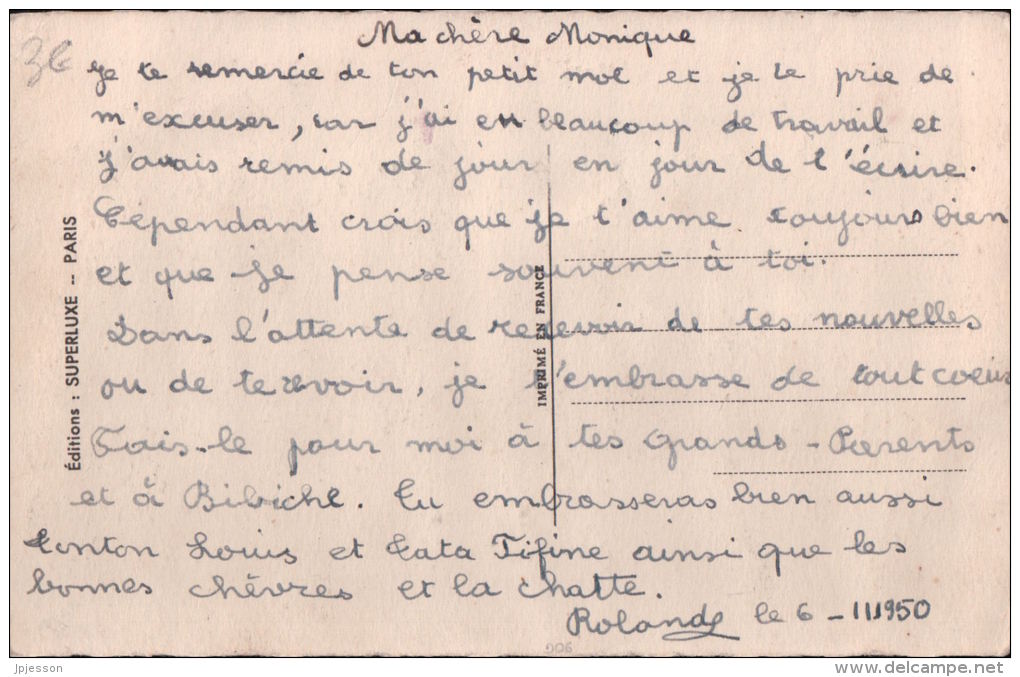 3€
Ma chère Monique
Je te remercie de ton petit mot et je te prie de
m'excuser, car j'ai eu beaucoup de travail et
j'avais remis de jour en jour de t'écrire.
Cependant crois que je t'aime toujours bien
et que je pense souvent à toi.
Dans l'attente de recevoir de tes nouvelles
ou de te revoir, je t'embrasse de tout coeur
Fais-le pour moi à tes Grands-Parents
et à Bibiche. Tu embrasseras bien aussi
Tonton Louis et Tata Fifine ainsi que les
bonnes chèvres et la chatte.
Roland le 6-III 1950
Éditions : SUPERLUXE -- PARIS
IMPRIMÉ EN FRANCE
906
jpjesson
www.delcampe.net